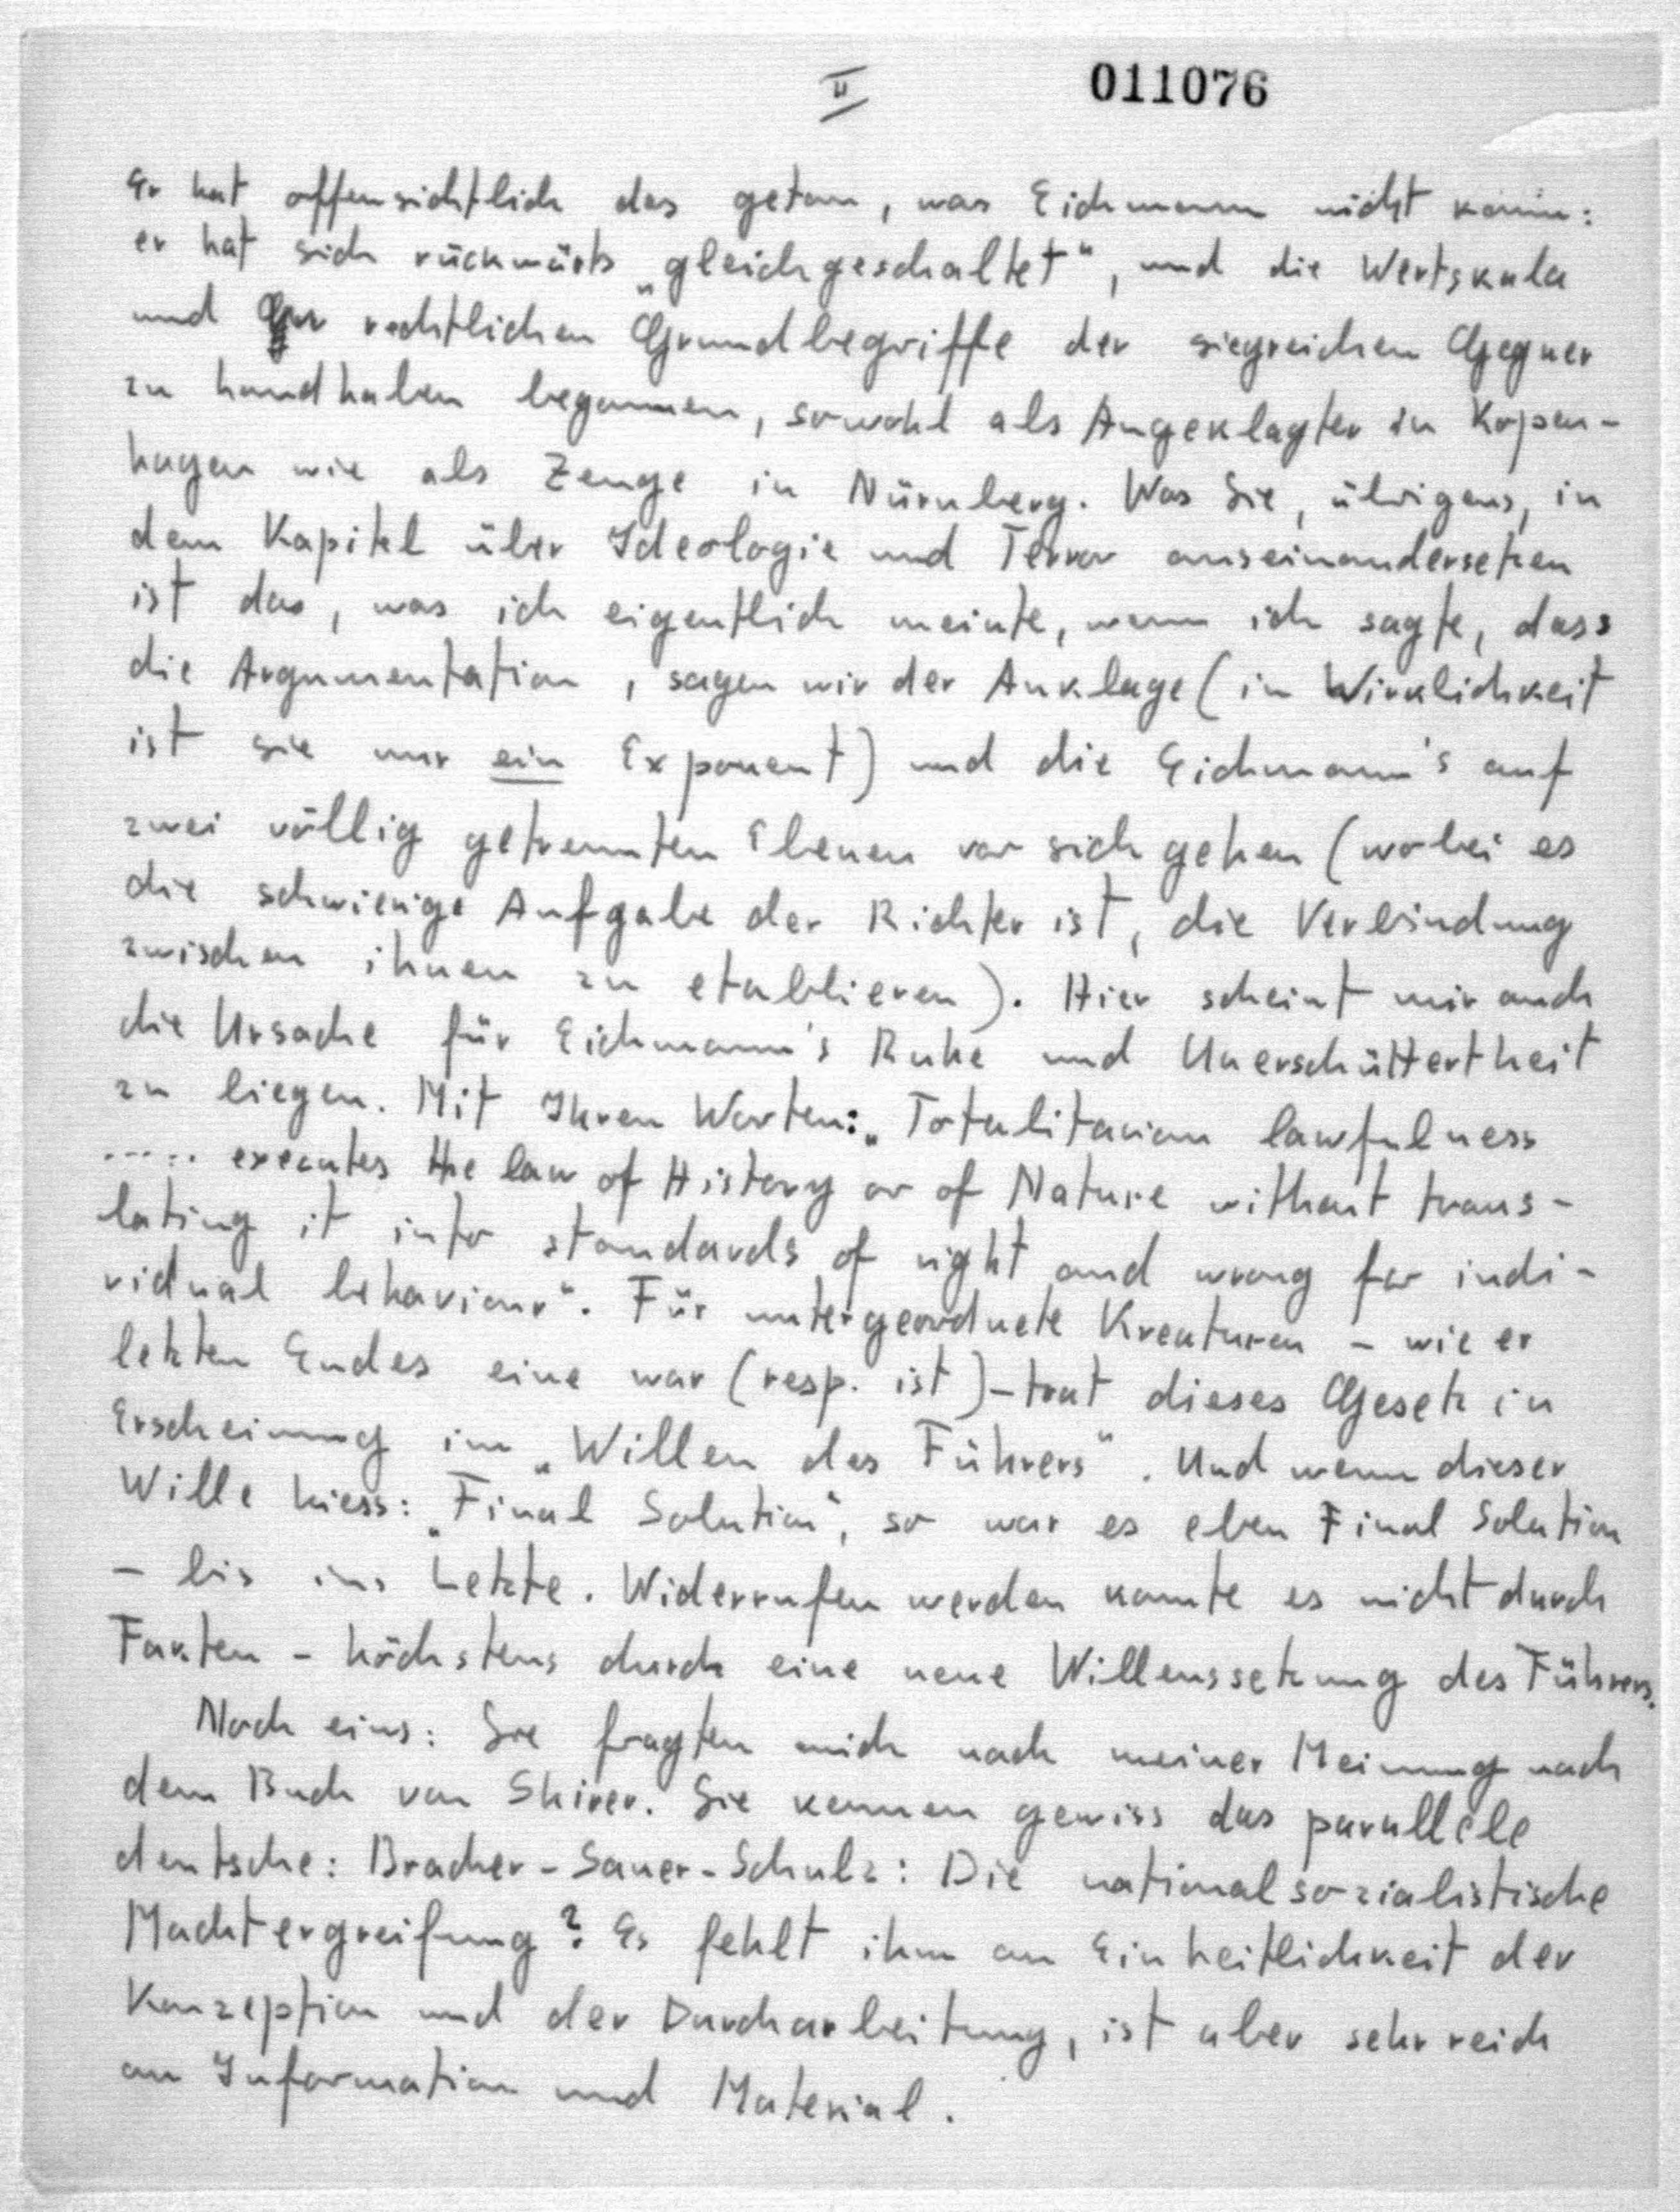 II
011076
Er hat offensichtlich das getan, was Eichmann nicht kann:
er hat sich rückwärts „gleichgeschaltet", und die Wertskala
und rechtlichen Grundbegriffe der siegreichen Gegner
zu handhaben begonnen, sowohl als Angeklagter in Kopen-
hagen wie als Zeuge in Nürnberg. Was Sie, übrigens, in
dem Kapitel über Ideologie und Terror auseinandersetzen
ist das, was ich eigentlich meinte, wenn ich sagte, dass
die Argumentation, sagen wir der Anklage (in Wirklichkeit
ist sie nur ein Exponent) und die Eichmann's auf
zwei völlig getrennten Ebenen vor sich gehen (wobei es
die schwierige Aufgabe der Richter ist, die Verbindung
zwischen ihnen zu etablieren). Hier scheint mir auch
die Ursache für Eichmann's Ruhe und Unerschüttertheit
zu liegen. Mit Ihren Worten: „Totalitarian lawfulness
..... executes the law of History or of Nature without trans-
lating it into standards of right and wrong for indi-
vidual behaviour". Für untergeordnete Kreaturen - wie er
letzten Endes eine war (resp. ist) - trat dieses Gesetz in
Erscheinung im „Willen des Führers". Und wenn dieser
Wille hiess: „Final Solution", so war es eben Final Solution
- bis ins Letzte. Widerrufen werden konnte es nicht durch
Fakten - höchstens durch eine neue Willenssetzung des Führers.
Noch eins: Sie fragten mich nach meiner Meinung nach
dem Buch von Shirer. Sie kennen gewiss das parallele
deutsche: Bracher-Sauer-Schulz: Die nationalsozialistische
Machtergreifung? Es fehlt ihm an Einheitlichkeit der
Konzeption und der Durcharbeitung, ist aber sehr reich
an Information und Material.